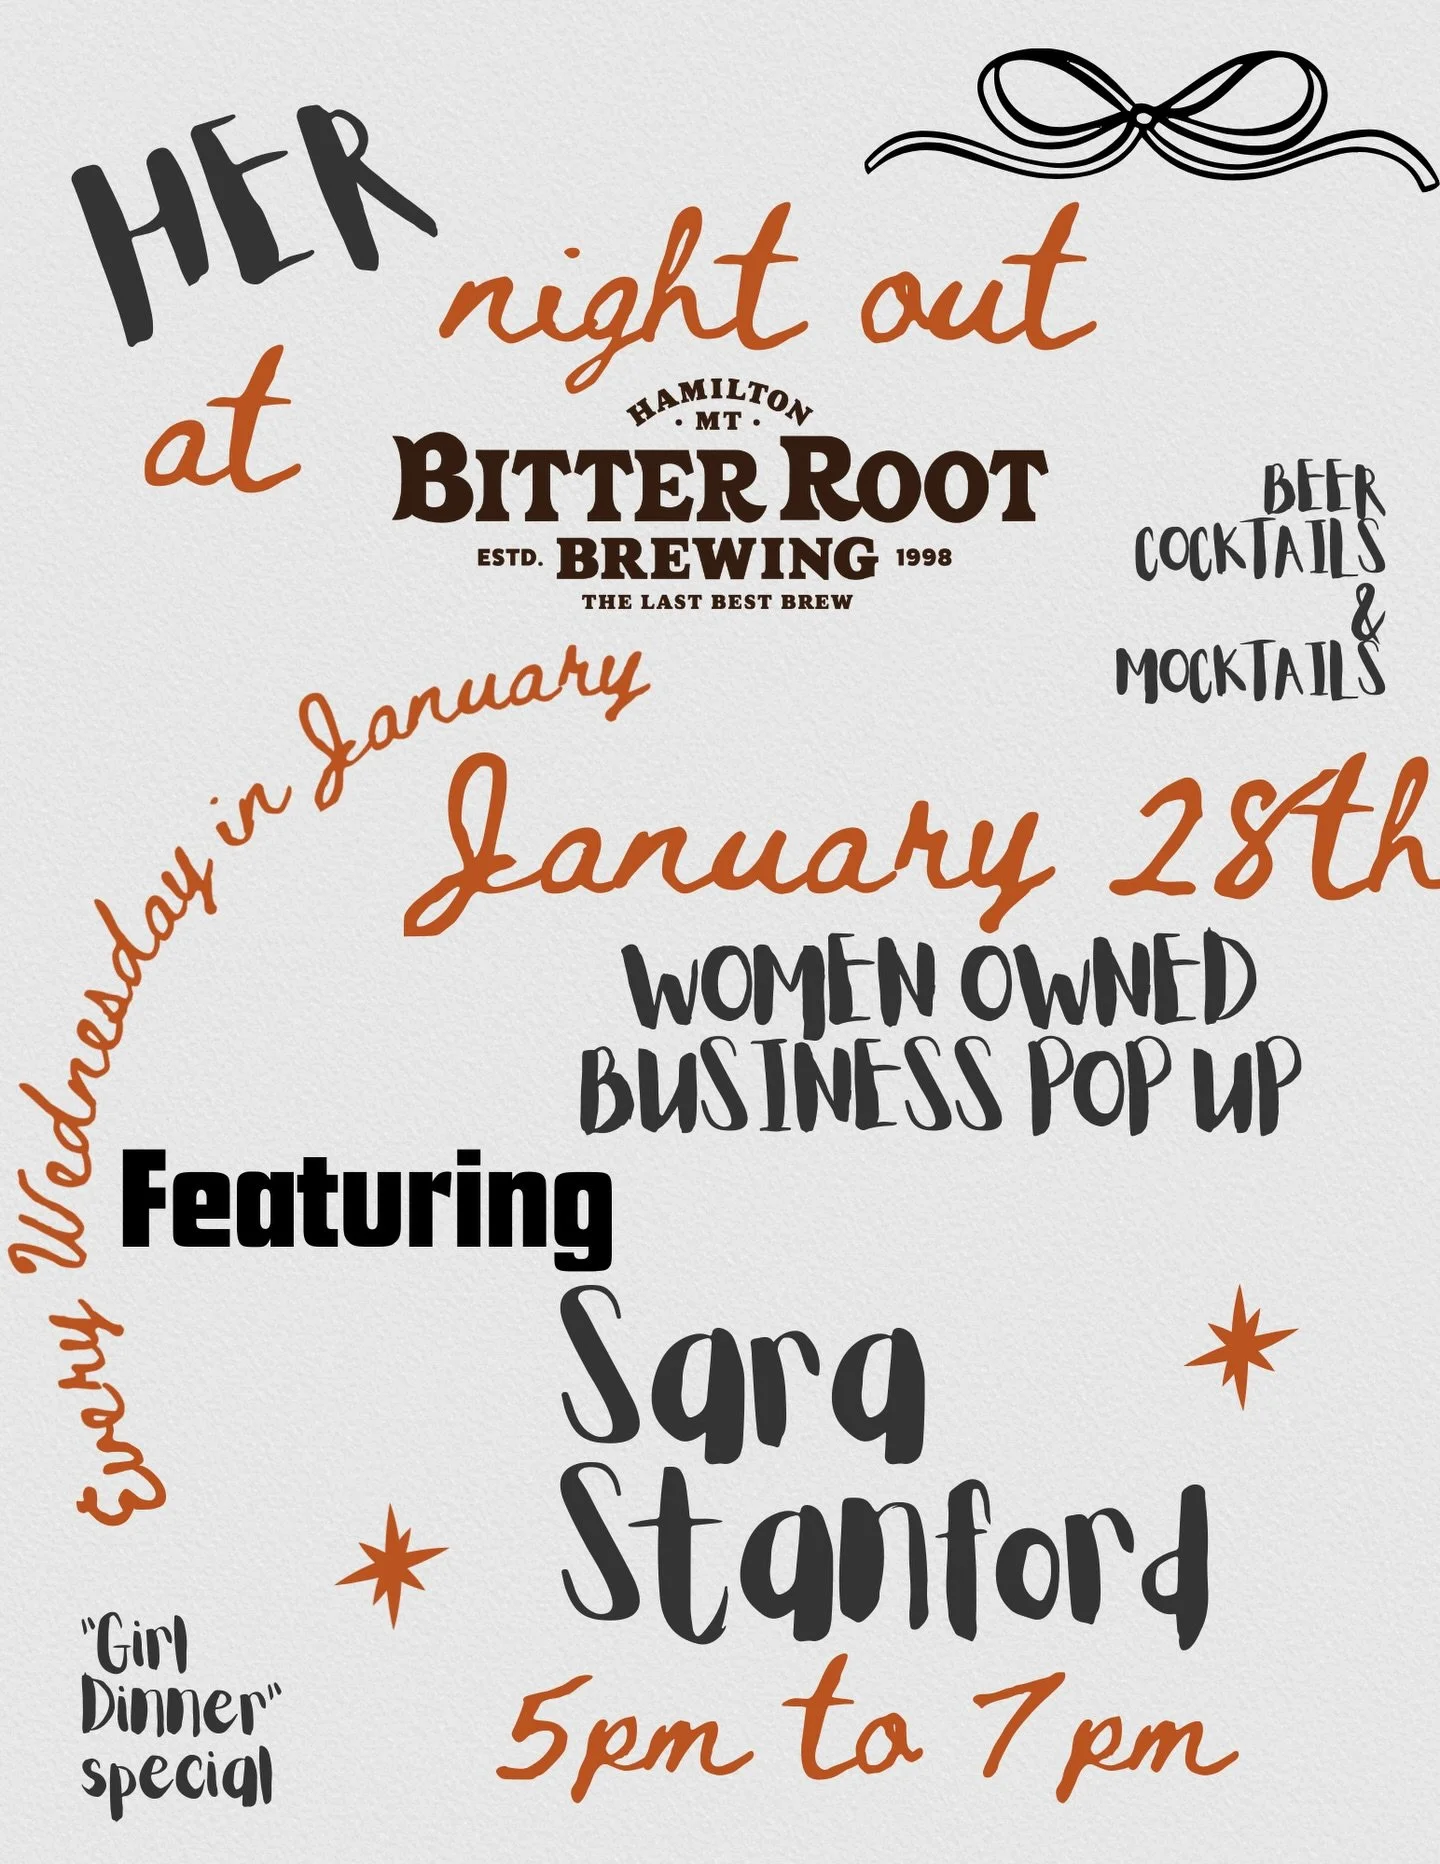 HER
night out
at
HAMILTON
· MT ·
BITTER ROOT
ESTD. BREWING 1998
THE LAST BEST BREW
BEER
COCKTAILS
&
MOCKTAILS
Every Wednesday in January
January 28th
WOMEN OWNED
BUSINESS POP UP
Featuring
Sara
Stanford
5pm to 7pm
"Girl
Dinner"
special